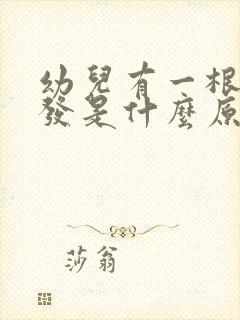 幼兒有一根
發是什麼原
莎翁